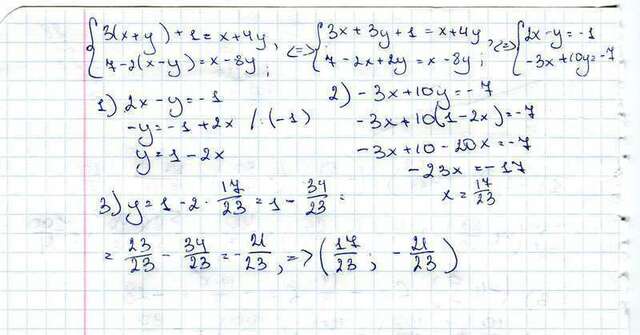 { 3(x+y)+1=x+4y, <=> { 3x+3y+1=x+4y, <=> { 2x-y=-1
7-2(x-y)=x-8y; 7-2x+2y=x-8y; -3x+10y=-7
1) 2x-y=-1
-y=-1+2x /·(-1)
y=1-2x
2) -3x+10y=-7
-3x+10(1-2x)=-7
-3x+10-20x=-7
-23x=-17
x=17/23
3) y=1-2·17/23=1-34/23=
=23/23-34/23=-21/23, => (17/23; -21/23)